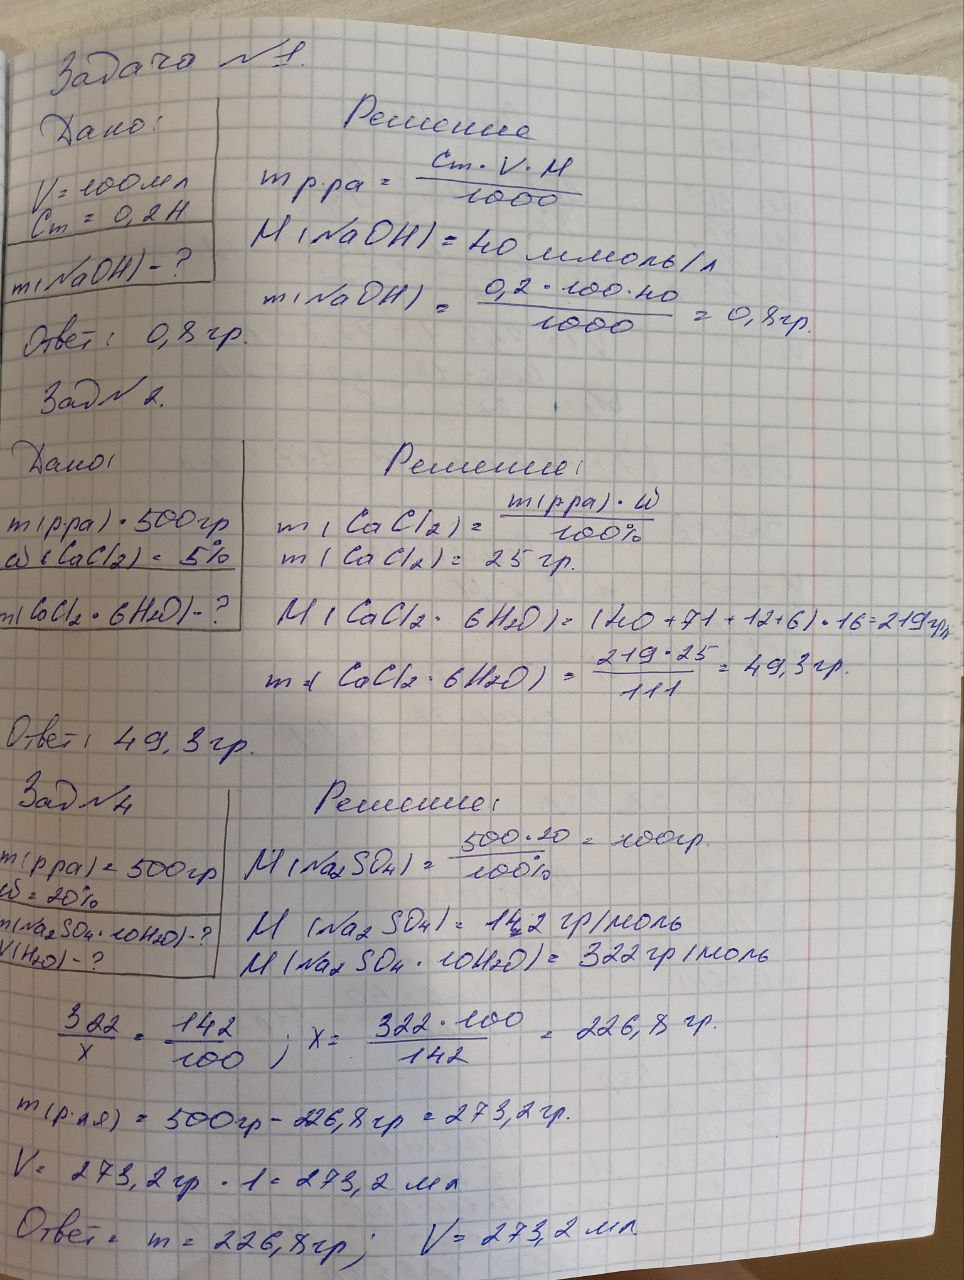 Задача №1.
Дано:
Решение
V = 100 мл
Cm = 0,2 H
m(NaOH) - ?
m р.ра = Cm · V · M / 1000
M (NaOH) = 40 ммоль/л
m(NaOH) = 0,2 · 100 · 40 / 1000 = 0,8 гр.
Ответ: 0,8 гр.
Зад № 2.
Дано:
Решение:
m(р.ра) = 500 гр
ω (CaCl2) = 5%
m(CaCl2 · 6H2O) - ?
m (CaCl2) = m(р.ра) · ω / 100%
m (CaCl2) = 25 гр.
M (CaCl2 · 6H2O) = (40 + 71 + 12 + 6) · 16 = 219 гр/
m (CaCl2 · 6H2O) = 219 · 25 / 111 = 49,3 гр.
Ответ: 49,3 гр.
Зад №4
Решение:
m(р.ра) = 500 гр
ω = 20%
m(Na2SO4 · 10H2O) - ?
V(H2O) - ?
M (Na2SO4) = 500 · 20 / 100% = 100 гр.
M (Na2SO4) = 142 гр/моль
M (Na2SO4 · 10H2O) = 322 гр/моль
322 / x = 142 / 100 ; x = 322 · 100 / 142 = 226,8 гр.
m(р.ля) = 500 гр - 226,8 гр = 273,2 гр.
V = 273,2 гр · 1 = 273,2 мл
Ответ = m = 226,8 гр; V = 273,2 мл.